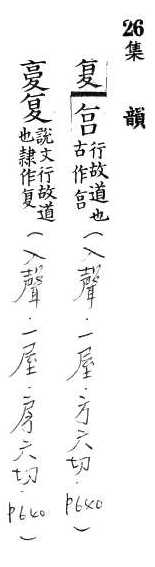 26集 韻
复㐬行故道也古作㐬(入聲.一屋.方六切.P640)
㚆复說文行故道也隸作复(入聲.一屋.房六切.P640)